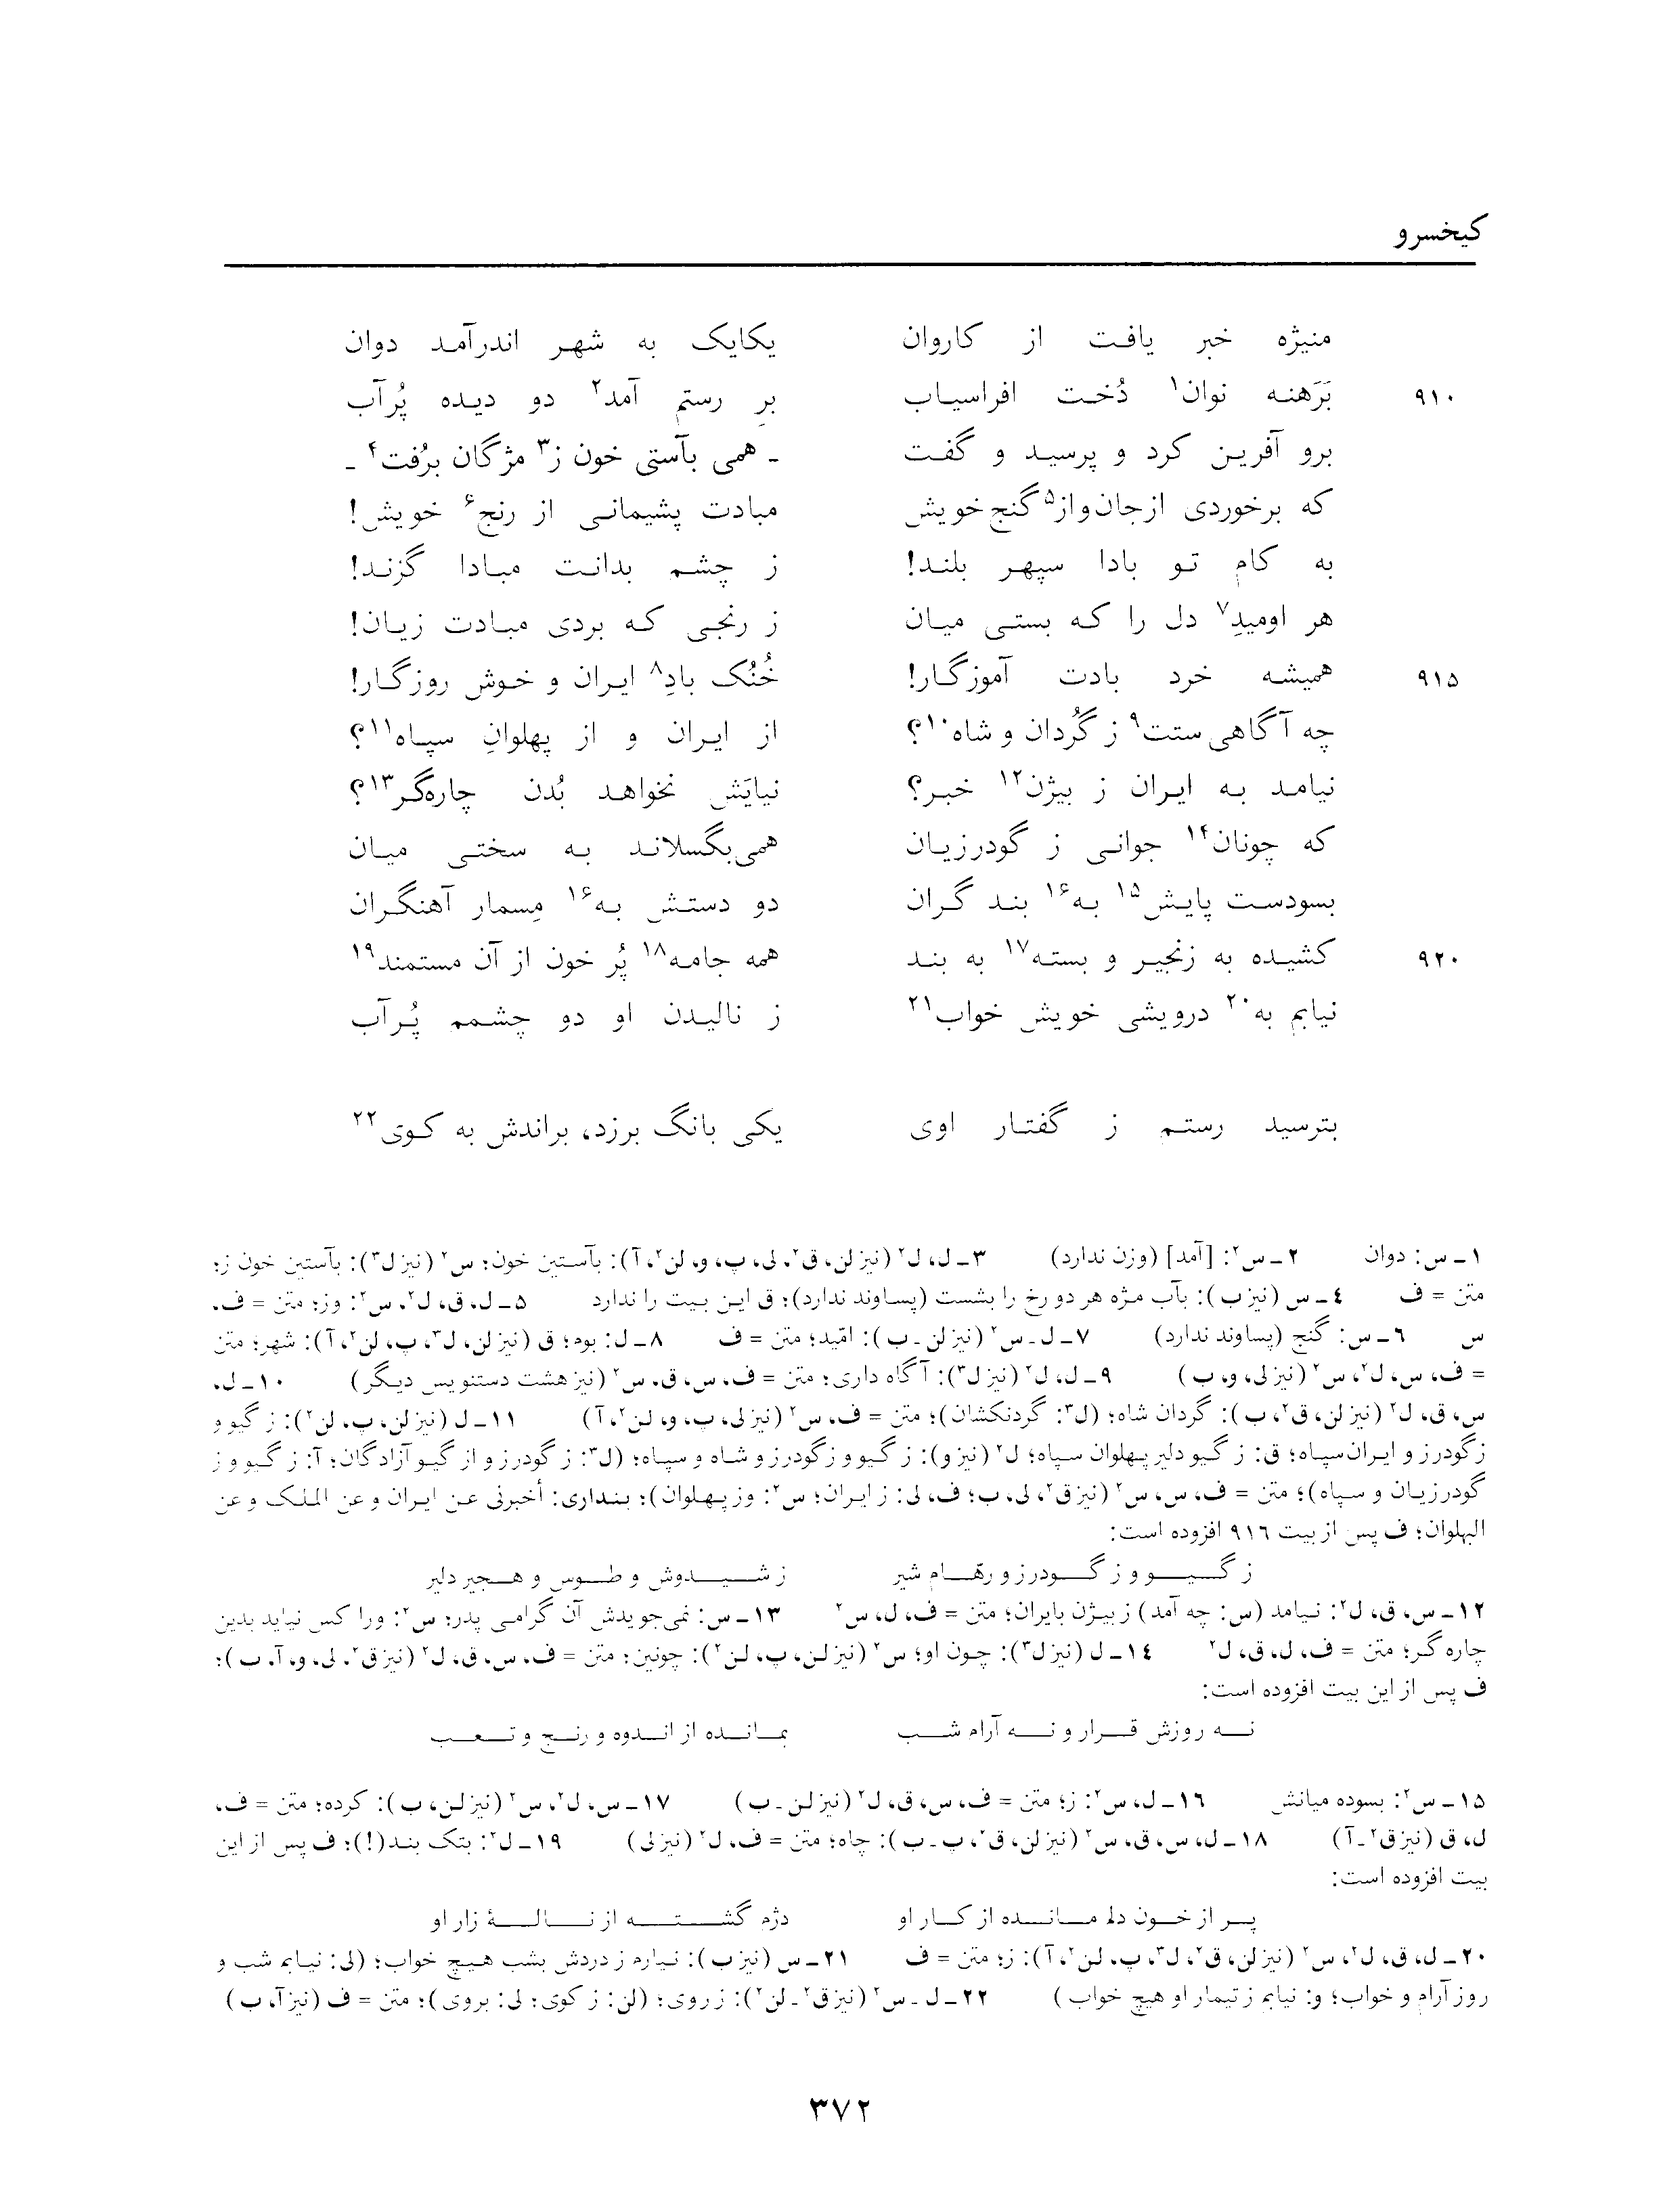 کیخسرو
منیژه خبر یافت از کاروان یکایک به شهر اندرآمد دوان
۹۱۰ بَرَهنه نوان۱ دُخت افراسیاب برِ رستم آمد۲ دو دیده پُرآب
برو آفرین کرد و پرسید و گفت ـ همی بآستی خون ز۳ مژگان برُفت۴ ـ
که برخوردی ازجان‌واز۵ گنج‌خویش مبادت پشیمانی از رنج۶ خویش!
به کام تو بادا سپهر بلند! ز چشم بدانت مبادا گزند!
هر اومیدِ۷ دل را که بستی میان ز رنجی که بردی مبادت زیان!
۹۱۵ همیشه خرد بادت آموزگار! خُنُک بادِ۸ ایران و خوش روزگار!
چه آگاهی‌ستت۹ ز گُردان و شاه۱۰؟ از ایران و از پهلوانِ سپاه۱۱؟
نیامد به ایران ز بیژن۱۲ خبر؟ نیایَش نخواهد بُدن چاره‌گر۱۳؟
که چونان۱۴ جوانی ز گودرزیان همی‌بگسلاند به سختی میان
بسودست پایش۱۵ به۱۶ بند گران دو دستش به۱۶ مِسمار آهنگران
۹۲۰ کشیده به زنجیر و بسته۱۷ به بند همه جامه۱۸ پُر خون از آن مستمند۱۹
نیابم به۲۰ درویشی خویش خواب۲۱ ز نالیدن او دو چشمم پُرآب
بترسید رستم ز گفتار اوی یکی بانگ برزد، براندش به کوی۲۲
۱ـ س: دوان ۲ـ س۲: [آمد] (وزن ندارد) ۳ـ ل، ل۲ (نیز لن، ق۲، لی، پ، و، لن۲، آ): بآستین خون؛ س۲ (نیز ل۳): بآستین خون ز؛
متن = ف ۴ـ س (نیز ب): بآب مژه هر دو رخ را بشست (پساوند ندارد)؛ ق این بیت را ندارد ۵ـ ل، ق، ل۲، س۲: وز؛ متن = ف،
س ۶ـ س: گنج (پساوند ندارد) ۷ـ ل ـ س۲ (نیز لن ـ ب): امّید؛ متن = ف ۸ـ ل: بوم؛ ق (نیز لن، ل۳، پ، لن۲، آ): شهر؛ متن
= ف، س، ل۲، س۲ (نیز لی، و، ب) ۹ـ ل، ل۲ (نیز ل۳): آگاه داری؛ متن = ف، س، ق، س۲ (نیز هشت دستنویس دیگر) ۱۰ـ ل،
س، ق، ل۲ (نیز لن، ق۲، ب): گردان شاه؛ (ل۳: گردنکشان)؛ متن = ف، س۲ (نیز لی، پ، و، لن۲، آ) ۱۱ـ ل (نیز لن، پ، لن۲): ز گیو و
زگودرز و ایران‌سپاه؛ ق: ز گیو دلیر پهلوان سپاه؛ ل۲ (نیز و): ز گیو و زگودرز و شاه و سپاه؛ (ل۳: ز گودرز و از گیو آزادگان؛ آ: ز گیو و ز
گودرزیان و سپاه)؛ متن = ف، س، س۲ (نیز ق۲، لی، ب؛ ف، لی: ز ایران؛ س۲: وز پهلوان)؛ بنداری: أخبرنی عن ایران و عن الملک و عن
البهلوان؛ ف پس از بیت ۹۱۶ افزوده است:
ز گیو و ز گودرز و رهّام شیر ز شیدوش و طوس و هجیر دلیر
۱۲ـ س، ق، ل۲: نیامد (س: چه آمد) ز بیژن بایران؛ متن = ف، ل، س۲ ۱۳ـ س: نمی‌جویدش آن گرامی پدر؛ س۲: ورا کس نیاید بدین
چاره گر؛ متن = ف، ل، ق، ل۲ ۱۴ـ ل (نیز ل۳): چون او؛ س۲ (نیز لن، پ، لن۲): چونین؛ متن = ف، س، ق، ل۲ (نیز ق۲، لی، و، آ، ب)؛
ف پس از این بیت افزوده است:
نه روزش قرار و نه آرام شب بمانده از اندوه و رنج و تعب
۱۵ـ س۲: بسوده میانش ۱۶ـ ل، س۲: ز؛ متن = ف، س، ق، ل۲ (نیز لن ـ ب) ۱۷ـ س، ل۲، س۲ (نیز لن، ب): کرده؛ متن = ف،
ل، ق (نیز ق۲ ـ آ) ۱۸ـ ل، س، ق، س۲ (نیز لن، ق۲، پ ـ ب): چاه؛ متن = ف، ل۲ (نیز لی) ۱۹ـ ل۲: بتک بند(!)؛ ف پس از این
بیت افزوده است:
پر از خون دل مانده از کار او دژم گشته از نالهٔ زار او
۲۰ـ ل، ق، ل۲، س۲ (نیز لن، ق۲، ل۳، پ، لن۲، آ): ز؛ متن = ف ۲۱ـ س (نیز ب): نیارم ز دردش بشب هیچ خواب؛ (لی: نیابم شب و
روز آرام و خواب؛ و: نیابم ز تیمار او هیچ خواب) ۲۲ـ ل ـ س۲ (نیز ق۲ ـ لن۲): ز روی؛ (لن: ز کوی؛ لی: بروی)؛ متن = ف (نیز آ، ب)
۳۷۲